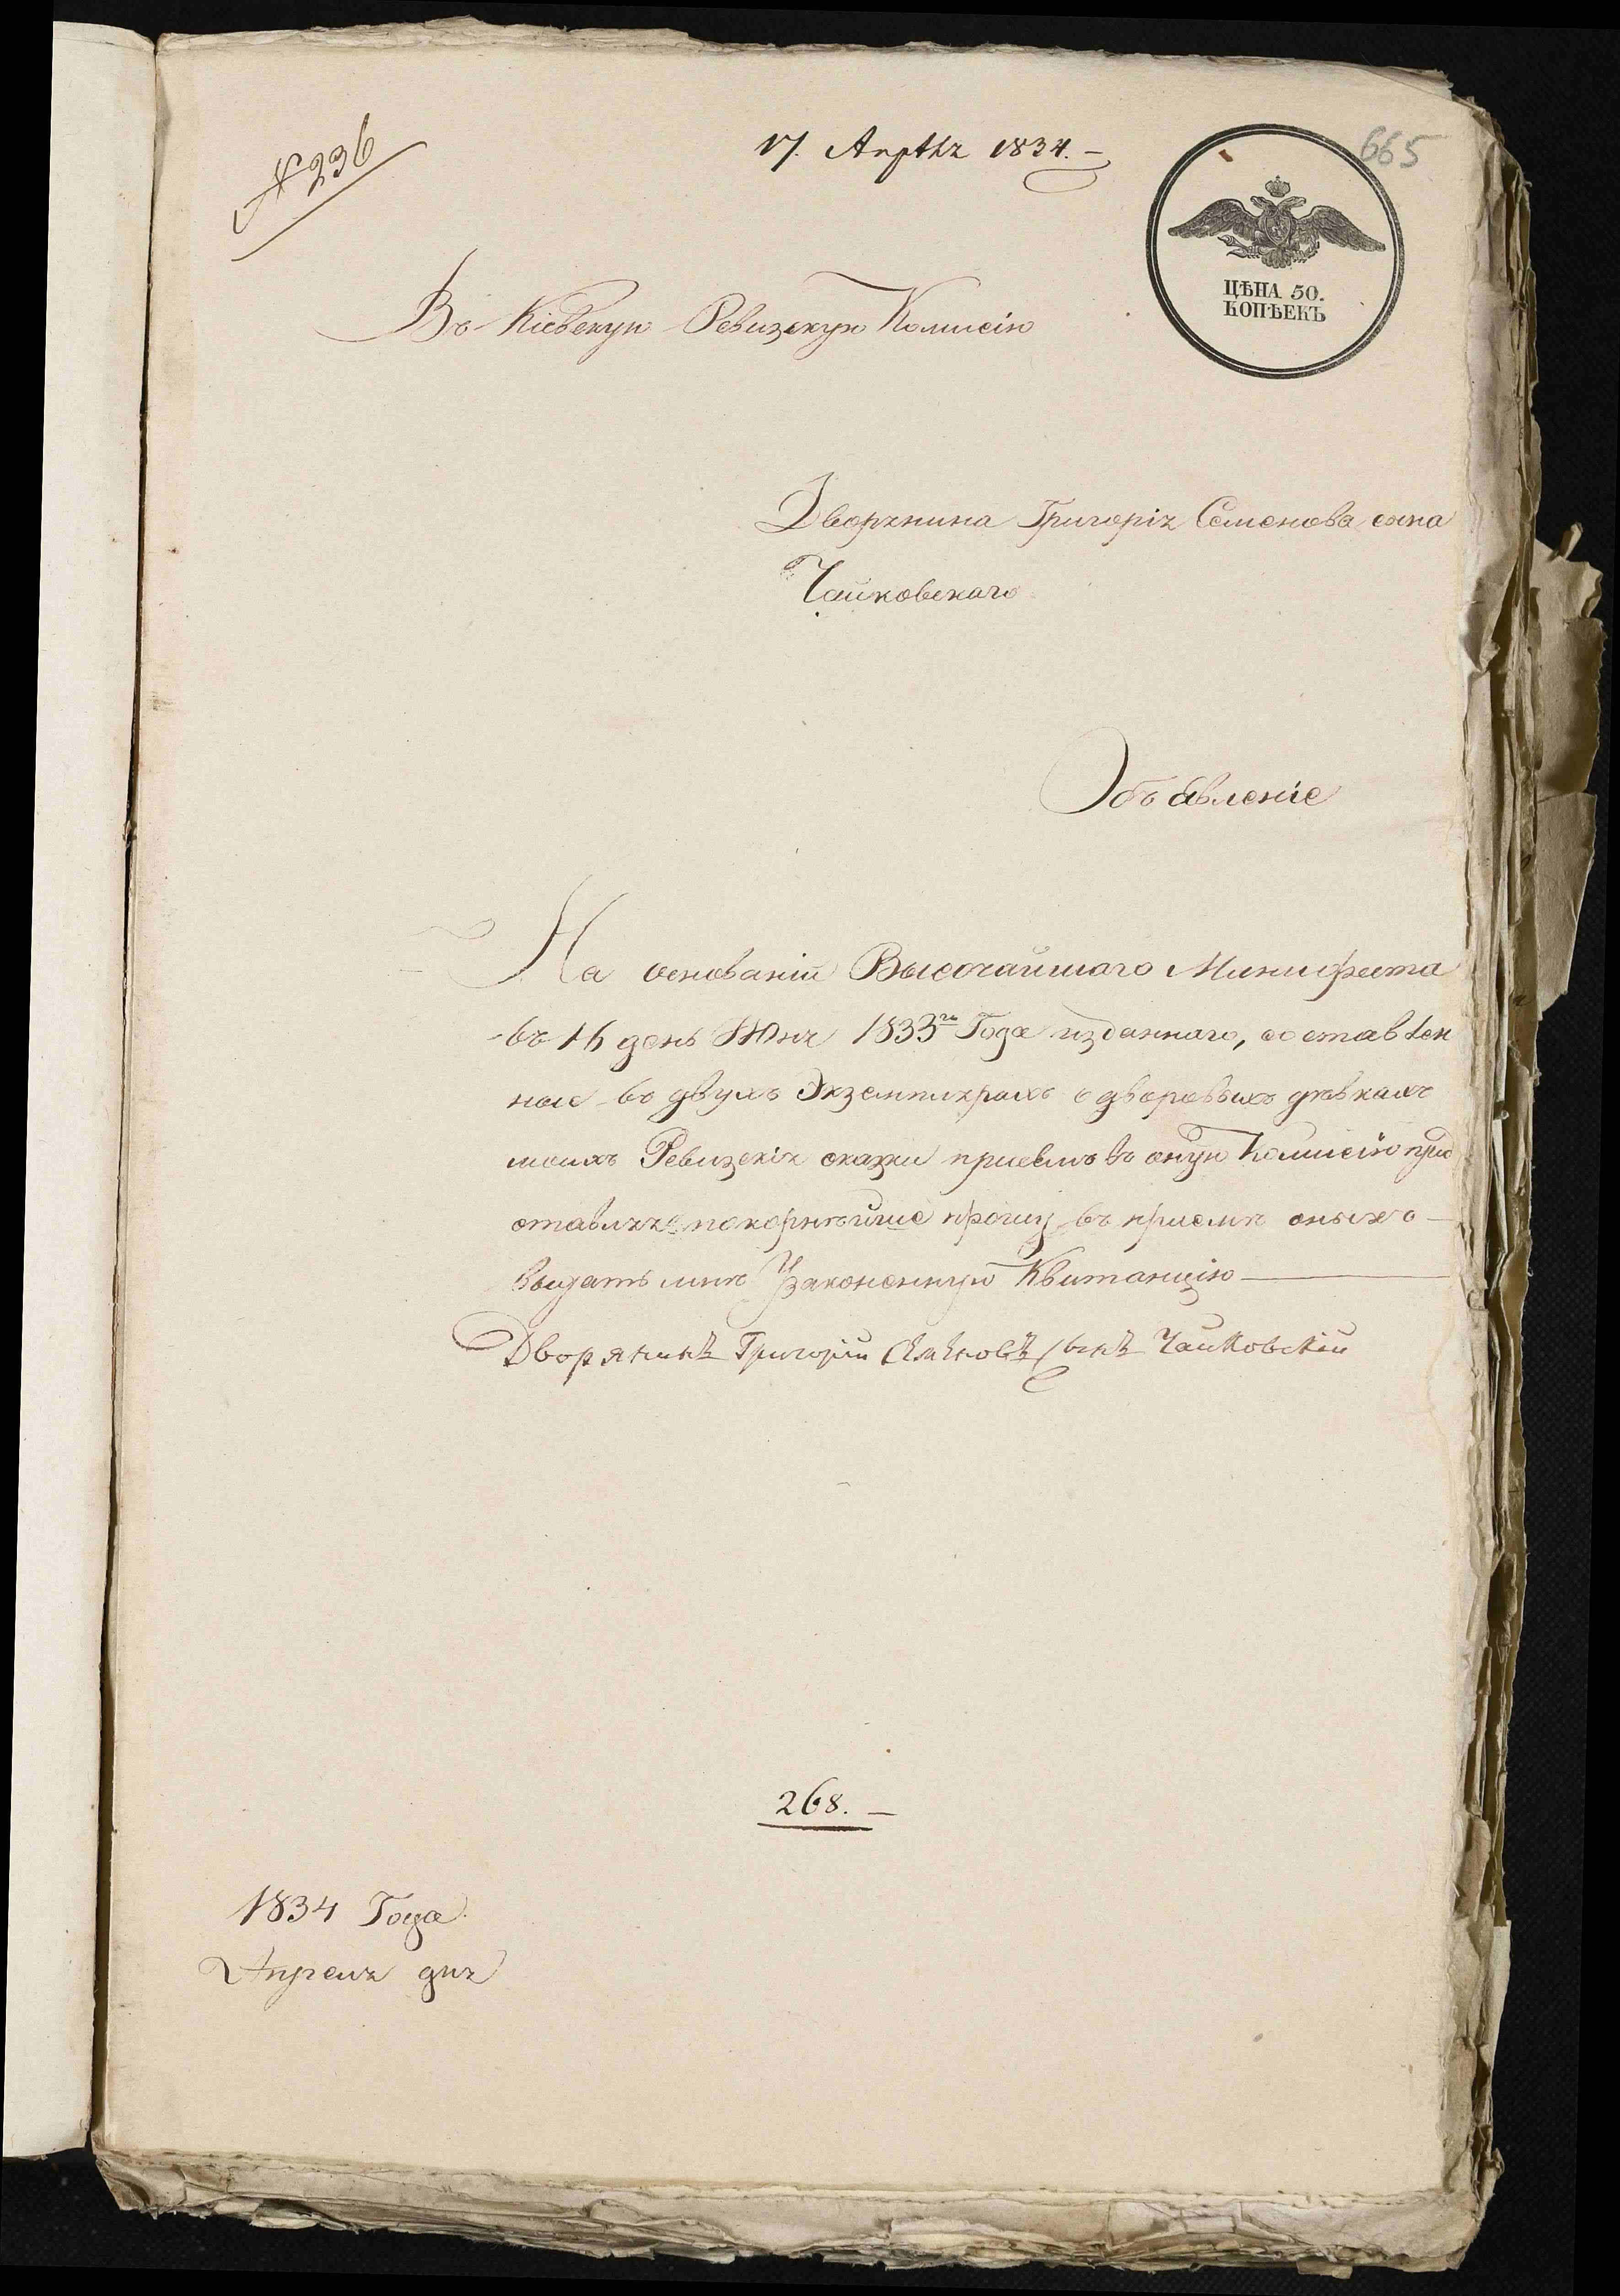 № 236
17. Апрѣля 1834.
665
ЦѢНА 50.
КОПѢЕКЪ
Въ Кіевскую Ревизскую Комисію
Дворянина Григорія Семенова сына
Чайковскаго
Объявленіе
На основаніи Высочайшаго Минифеста
въ 16 день Іюня 1833го Года изданнаго, составлен
ные въ двухъ Экземплярахъ о дворовыхъ дѣвкахъ
моихъ Ревизскія сказки приемлъ въ оную Комисію пред
ставляя покорнѣйше прошу въ приемѣ оныхъ
выдать мнѣ Узаконенную Квитанцію
Дворянинъ Григорій Семеновъ сынъ Чайковскій
268.
1834 Года
Апреля дня